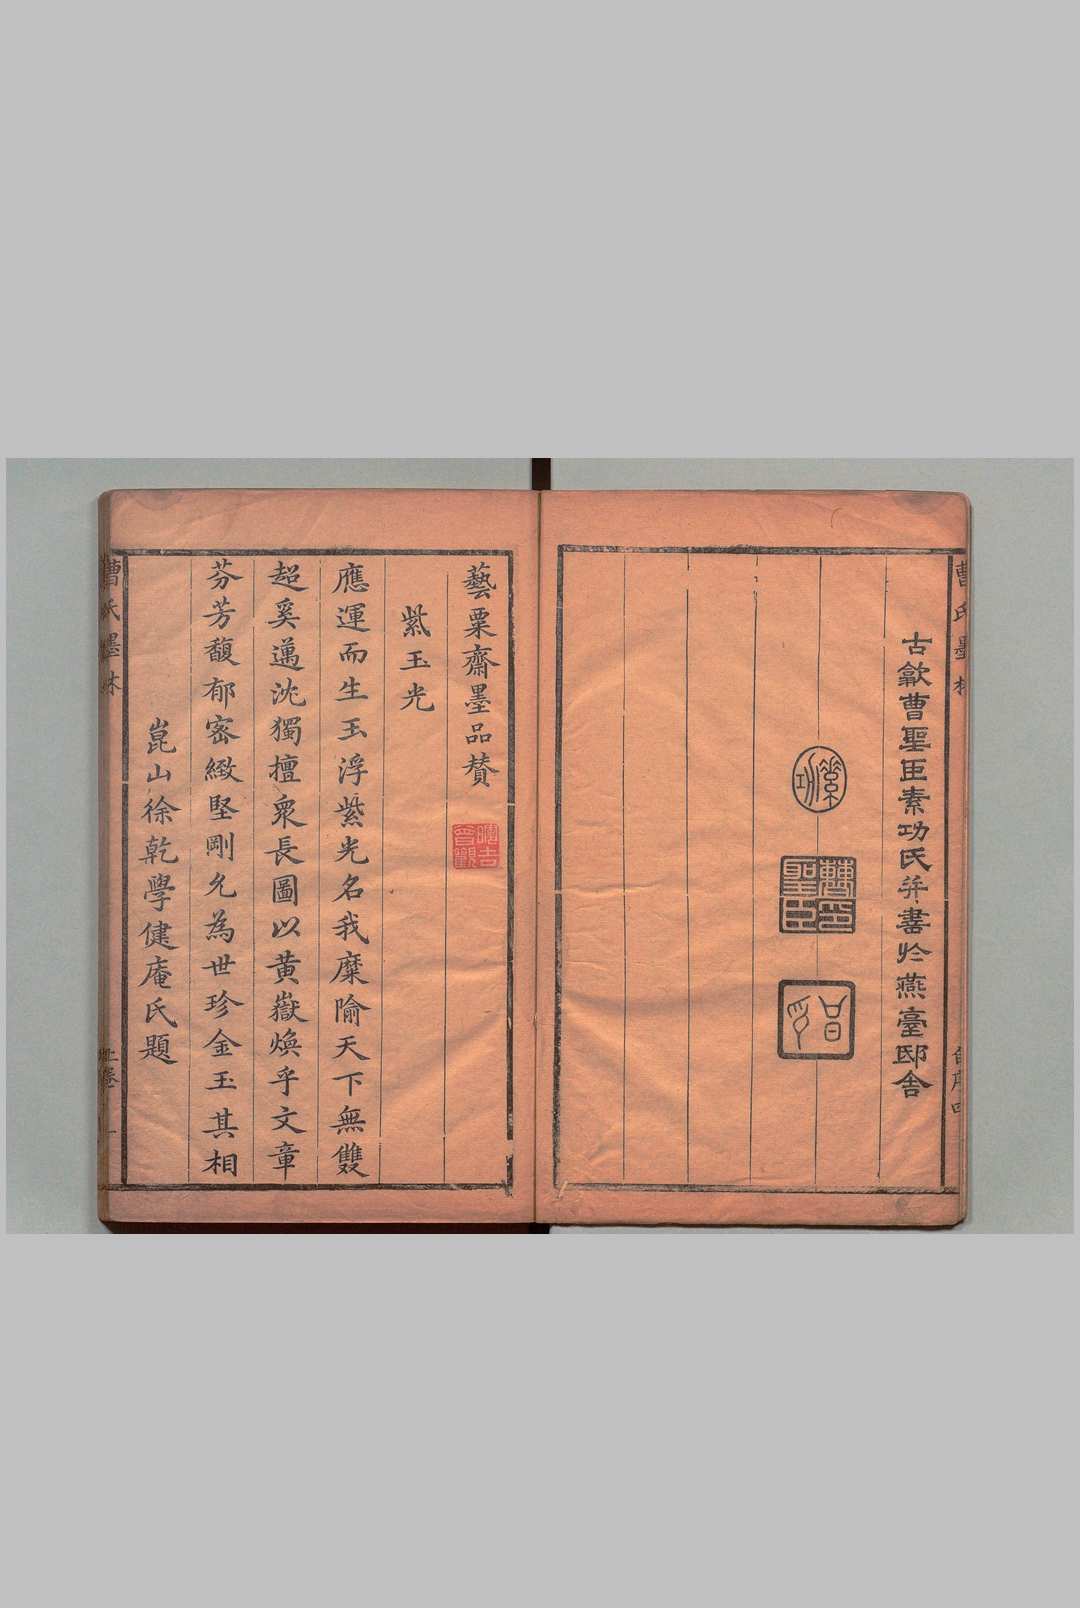 曹氏墨林
自序四
古歙曹聖臣素功氏并書於燕臺邸舍
素功
曹聖臣印
藝粟齋墨品贊
紫玉光
應運而生玉浮紫光名我糜隃天下無雙
超奚邁沈獨擅衆長圖以黄嶽煥乎文章
芬芳馥郁密緻堅剛允為世珍金玉其相
崑山徐乾學健庵氏題
曹氏墨林
上卷
一